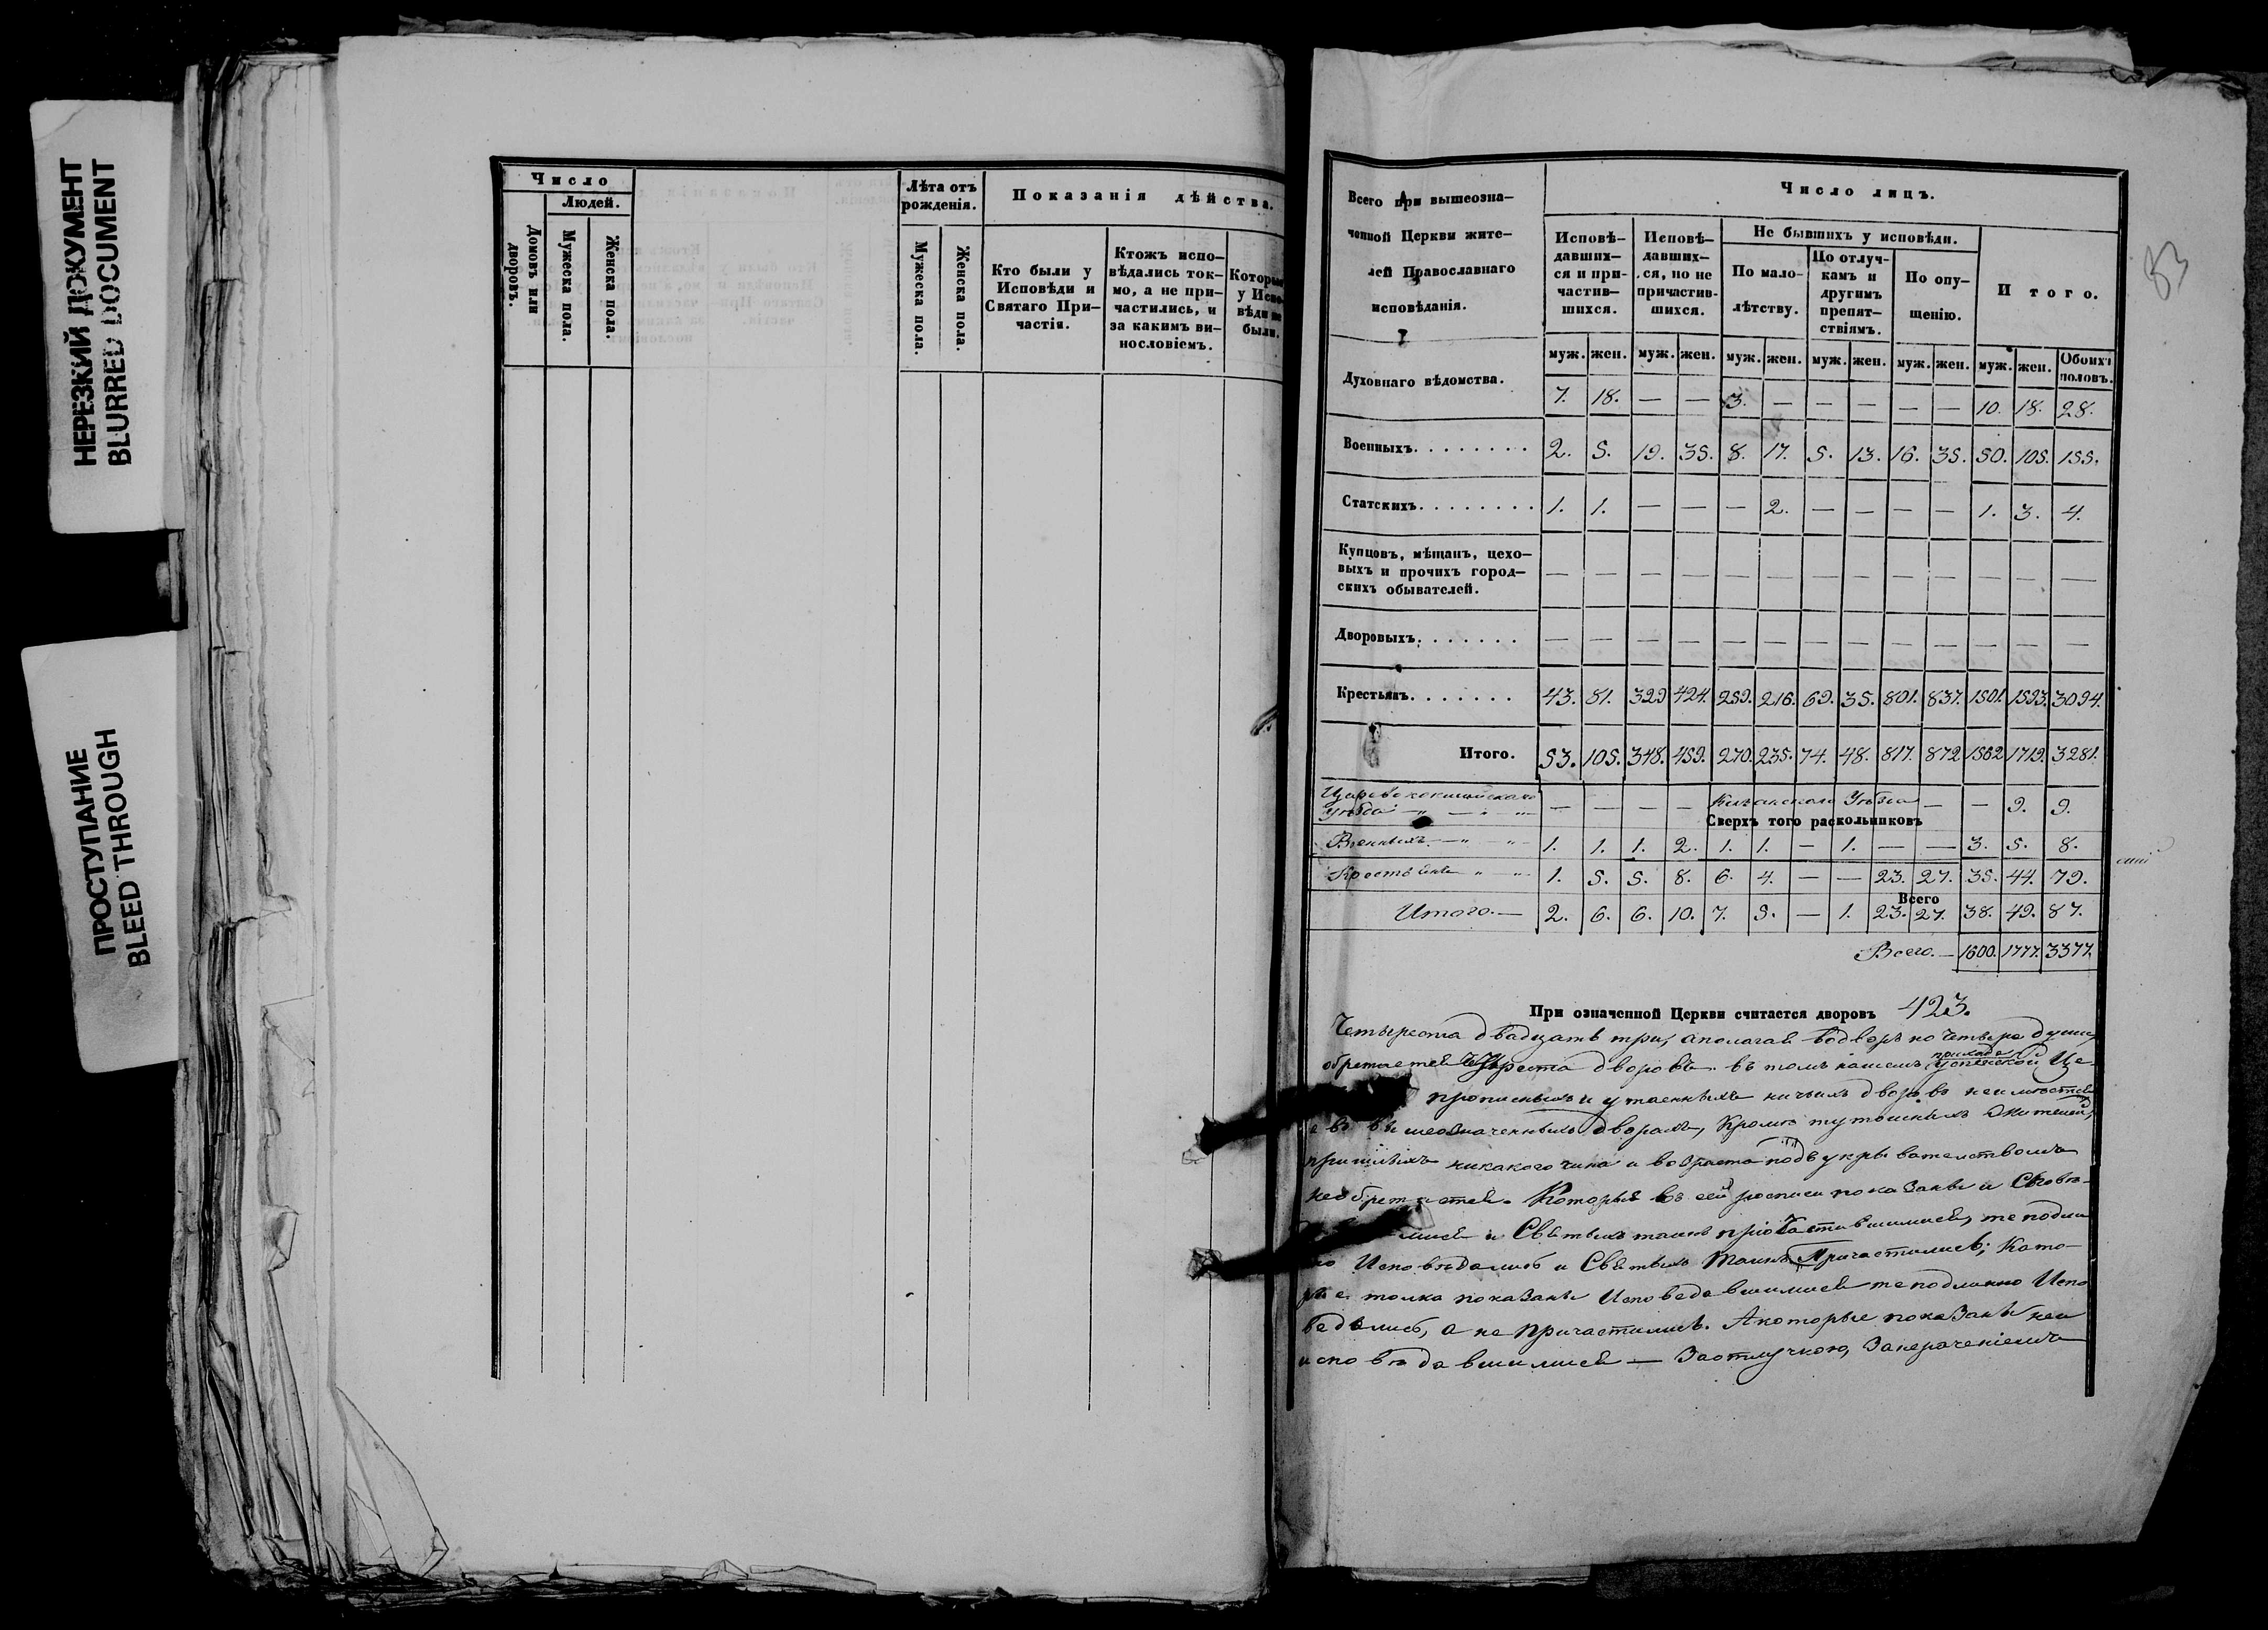 НЕРЕЗКИЙ ДОКУМЕНТ
BLURRED DOCUMENT
ПРОСТУПАНИЕ
BLEED THROUGH
Число
Людей.
Домовъ или дворовъ.
Мужеска пола.
Женска пола.
Лѣта отъ рожденія.
Мужеска пола.
Женска пола.
Показанія дѣйства.
Кто были у Исповѣди и Святаго Причастія.
Ктожъ исповѣдались токмо, а не причастились, и за какимъ винословіемъ.
у Испо-
были.
83
Всего при вышеозна-
ченной Церкви жите-
лей Православнаго
исповѣданія.
Число лицъ.
Исповѣ-
давших-
ся и при-
частив-
шихся.
Исповѣ-
давших-
ся, но не
причастив-
шихся.
Не бывшихъ у исповѣди.
По мало-
лѣтству.
По отлуч-
камъ и
другимъ
препят-
ствіямъ.
По опу-
щенію.
Итого.
муж. жен. муж. жен. муж. жен. муж. жен. муж. жен. муж. жен. Обоихъ половъ.
Духовнаго вѣдомства. 7. 18. — — 3. — — — — — 10. 18. 28.
Военныхъ. . . . . . . . 2. 5. 19. 35. 8. 17. 5. 13. 16. 35. 50. 105. 155.
Статскихъ. . . . . . . . 1. 1. — — — 2. — — — — 1. 3. 4.
Купцовъ, мѣщанъ, цехо-
выхъ и прочихъ город-
скихъ обывателей. — — — — — — — — — — — — —
Дворовыхъ. . . . . . . — — — — — — — — — — — — —
Крестьянъ. . . . . . . 43. 81. 329 424. 259. 216. 69. 35. 801. 837. 1501. 1593. 3094.
Итого. 53. 105. 348. 459. 270. 235. 74. 48. 817. 872 1562 1719. 3281.
Царевококшайскаго
Уѣзда — — — — Уѣзда — — 9. 9.
Сверхъ того раскольниковъ
Военныхъ 1. 1. 1. 2. 1. 1. — 1. — — 3. 5. 8.
Крестьянъ 1. 5. 5. 8. 6. 4. — — 23. 27. 35. 44. 79.
Всего
Итого.— 2. 6. 6. 10. 7. 5. — 1. 23. 27. 38. 49. 87.
Всего.— 1600. 1777. 3377.
При означенной Церкви считается дворовъ 423.
Четыреста двадцать три, а полагая въ дворъ по четыре души,
обретается дворовъ. въ томъ нашемъ приходе Успенской Це-
прописныхъ и утаенныхъ ничьихъ дворовъ неимеется
вышеозначенныхъ дворахъ, Кромѣ тутошнихъ жителей,
пришлыхъ никакого чина и возраста подъ укрывательствомъ
необретается. Которые въ сей росписи показаны и
и Святыхъ таинъ те подлин
но Исповѣдались и Святыхъ Таинъ Причастились; Кото-
рые толка показаны Исповедавшимися те подлинно Испо
ведались, а не причастились. А которые показаны неи
исповѣдавшимися — За отлучкою, За нераченіемъ